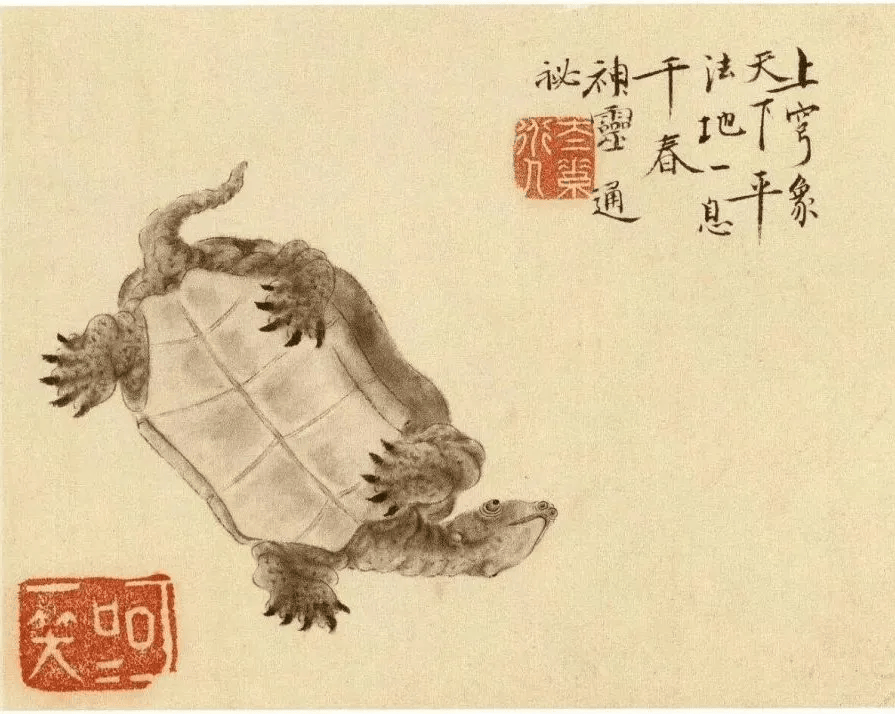 上穹象
天下平
法地一息
千春
神靈通
祕
呵二
一笑